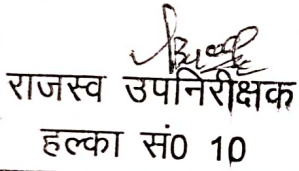 राजस्व उपनिरीक्षक
हल्का सं0 10